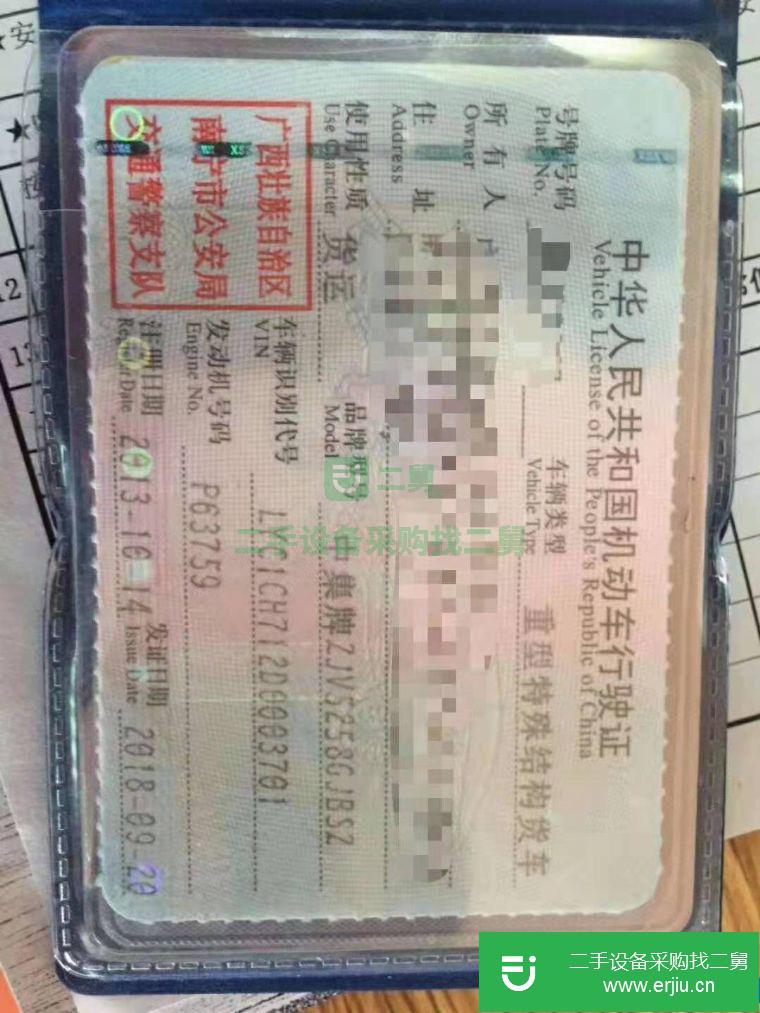 中华人民共和国机动车行驶证
Vehicle License of the People's Republic of China
号牌号码
Plate No.
车辆类型
Vehicle Type
重型特殊结构货车
所有人
Owner
住址
Address
使用性质
Use Character
货运
品牌型号
Model
中集牌ZJV5258GJBSZ
广西壮族自治区
南宁市公安局
交通警察支队
车辆识别代号
VIN
发动机号码
Engine No.
P63759
注册日期
Register Date
2013-10-14
发证日期
Issue Date
2018-09-20
二舅
二手设备采购找二舅
二手设备采购找二舅
www.erjiu.cn